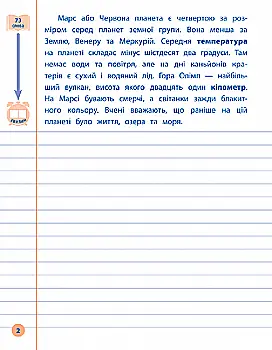 73
слова
Марс або Червона планета є четвертою за роз-
міром серед планет земної групи. Вона менша за
Землю, Венеру та Меркурій. Середня температура
на планеті складає мінус шістдесят два градуси. Там
немає води та повітря, але на дні каньйонів кра-
терів є сухий і водяний лід. Гора Олімп — найбіль-
ший вулкан, висота якого двадцять один кілометр.
На Марсі бувають смерчі, а світанки завжди блакит-
ного кольору. Вчені вважають, що раніше на цій
планеті було життя, озера та моря.
2